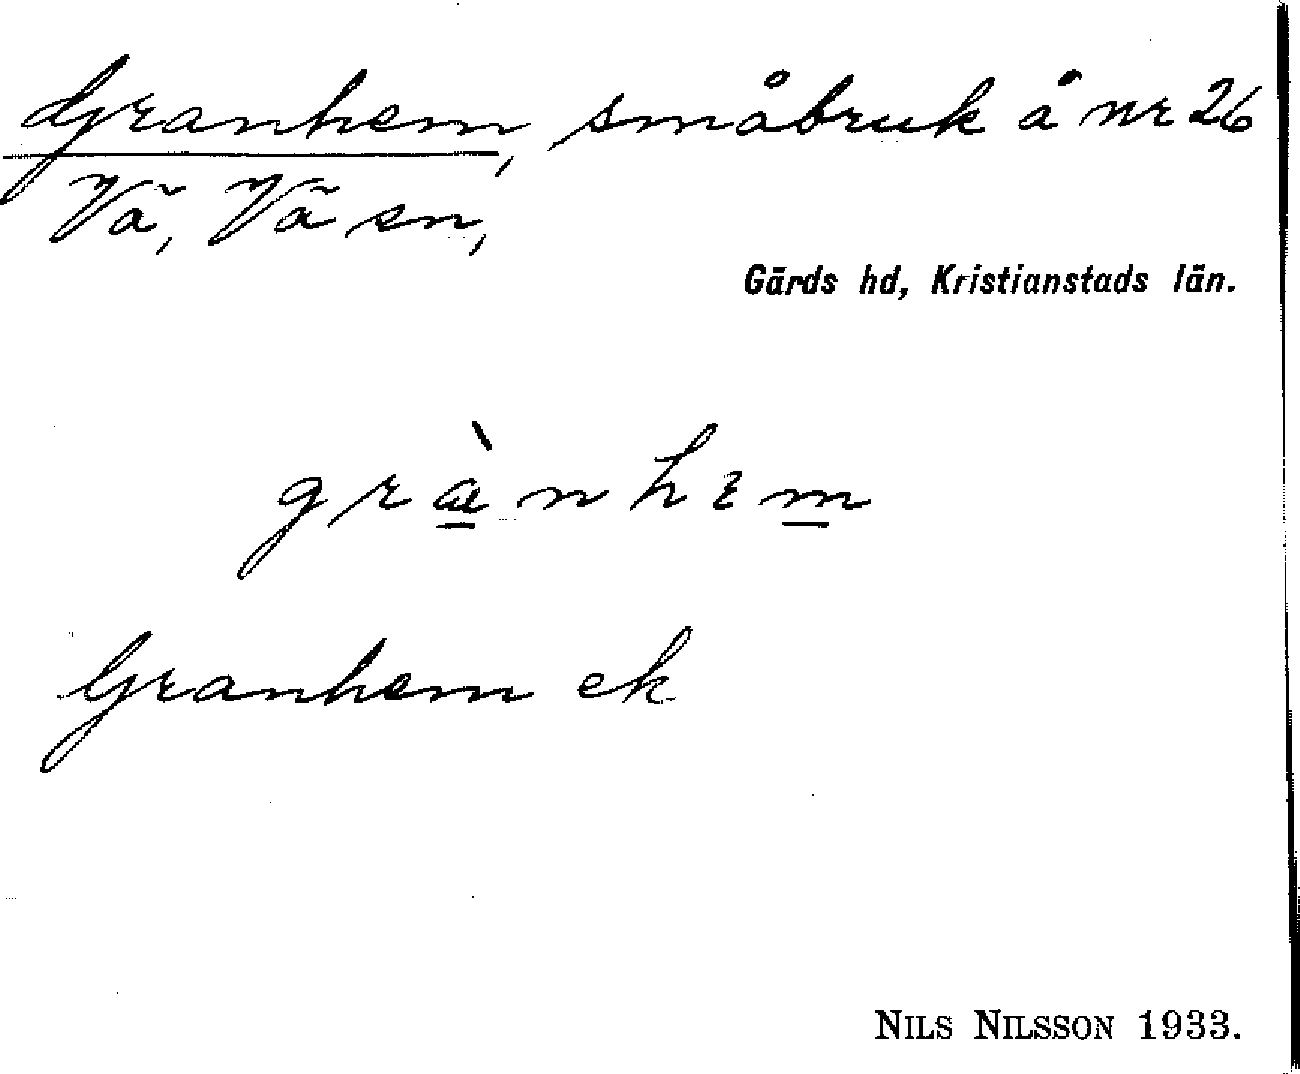 Granhem, småbruk å nr 26
Vä, Vä sn,
Gärds hd, Kristianstads län.
grànhem
Granhem ek
NILS NILSSON 1933.